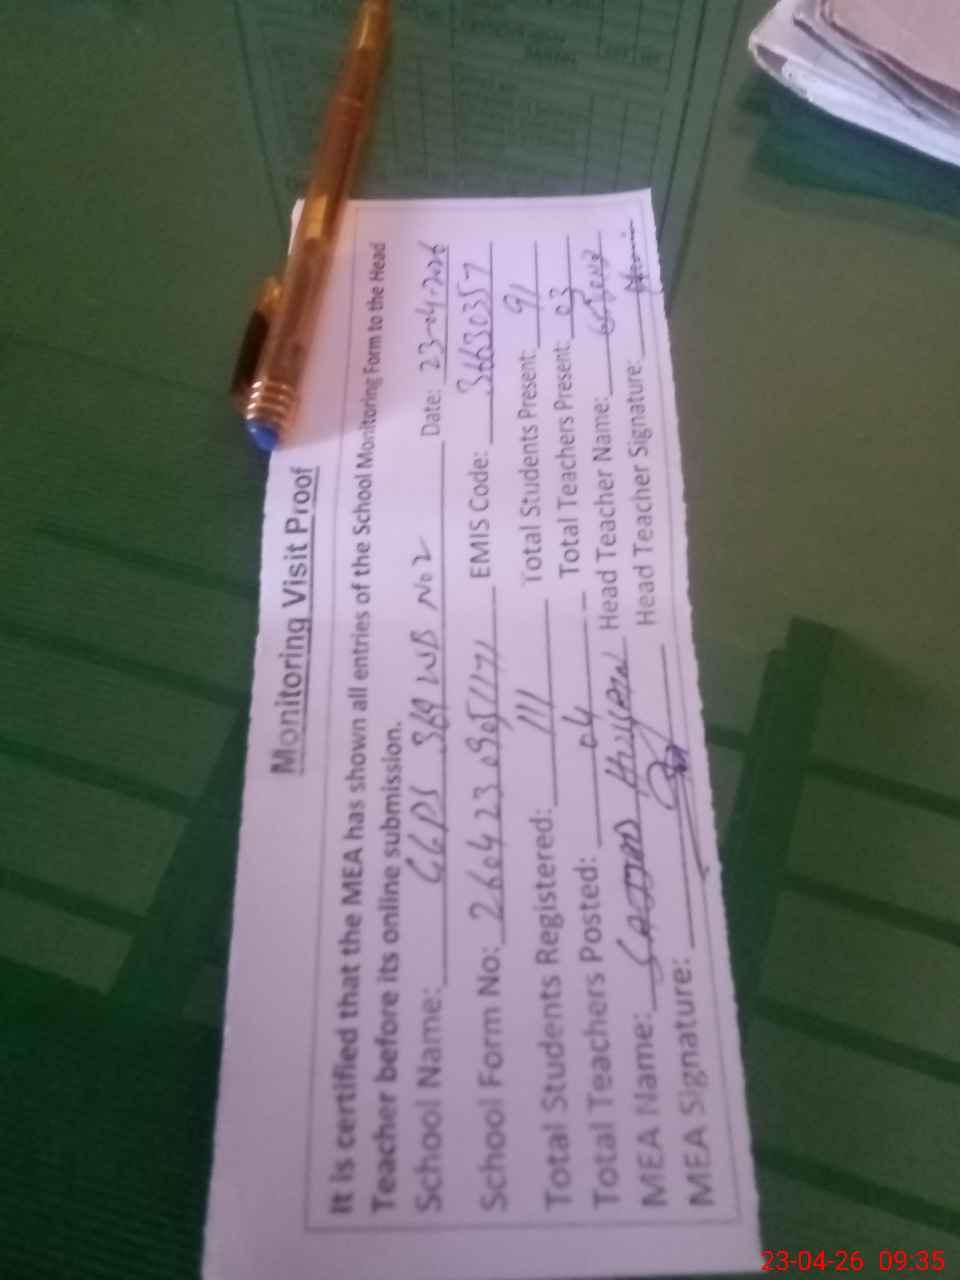 Monitoring Visit Proof
It is certified that the MEA has shown all entries of the School Monitoring Form to the Head
Teacher before its online submission.
School Name: GGPS 369 WB No 2 Date: 23-04-2026
School Form No: 26042309051171 EMIS Code: 36630357
Total Students Registered: 111 Total Students Present: 91
Total Teachers Posted: 04 Total Teachers Present: 03
MEA Name: SAJJAD HUSSAIN Head Teacher Name:
MEA Signature: Head Teacher Signature:
23-04-26 09:35